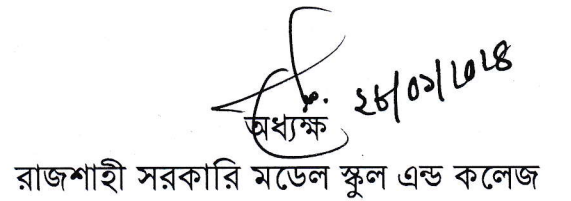 ২৮/০১/২০২৪
অধ্যক্ষ
রাজশাহী সরকারি মডেল স্কুল এন্ড কলেজ